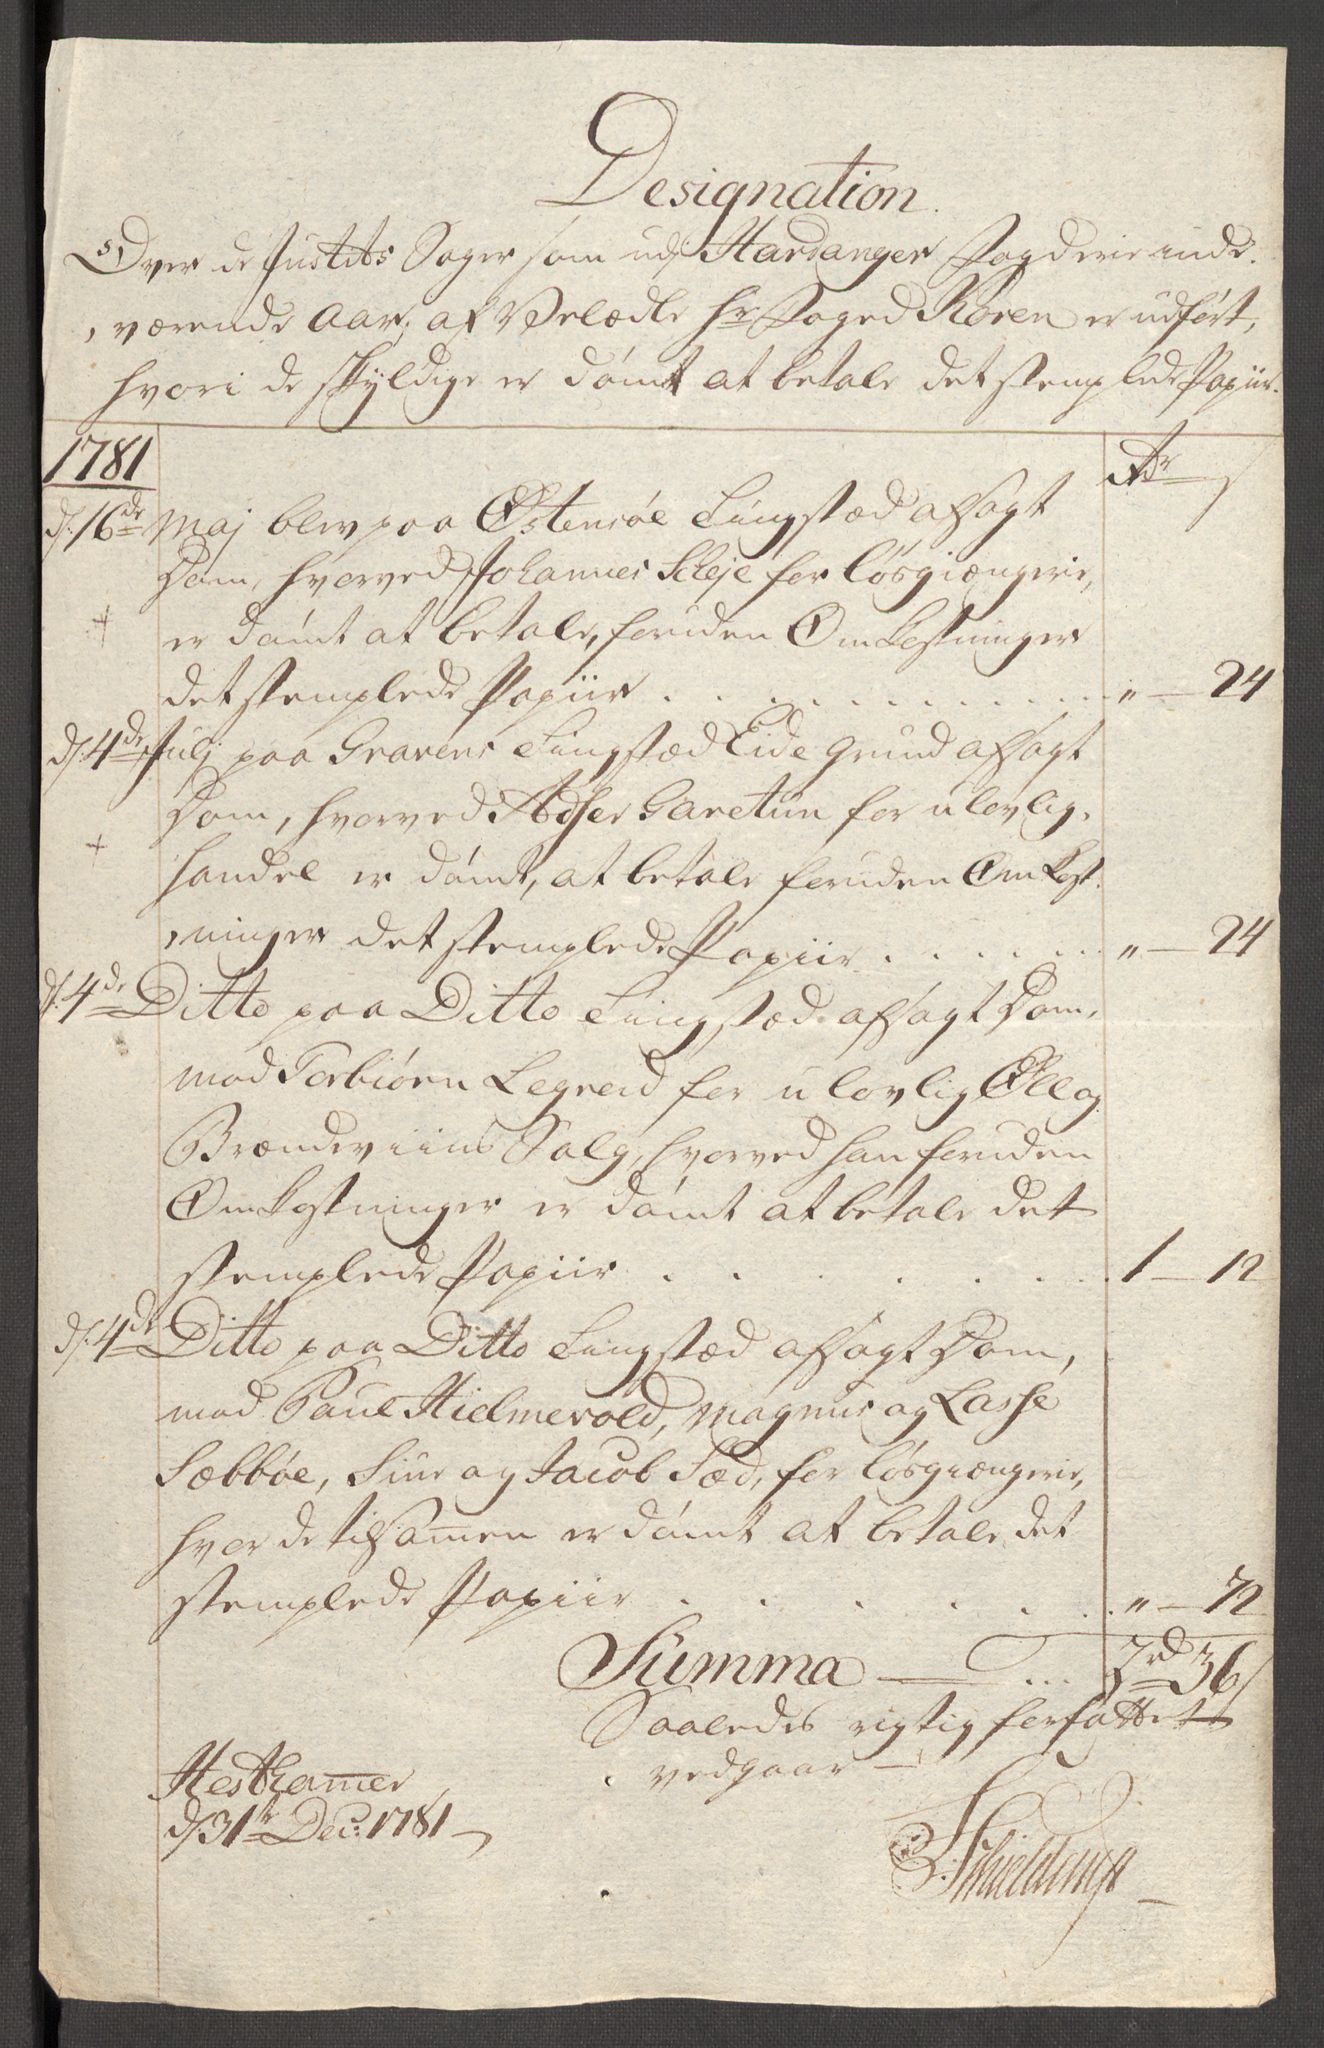 Designation
Over de Justits Sager som udj Hardanger Fogderie inde-
værende Aar, af Velædle Hr. Foged Koren er udført,
hvori de skyldige er dømt at betale det stemplede Papiir.
1781 Rdr s
d. 16de Maj blev paa Østensøe Tingstæd afsagt
Dom, hvorved Johannes Scheje for løsgiængerie,
er dømt at betale, foruden Omkostninger
det stemplede Papiir . . . . . . . . . . . „ — 24
d. 4de Julj paa Gravens Tingstæd Eide Grund afsagt
Dom, hvorved Adser Garetun for ulovlig
handel er dømt, at betale foruden Omkost-
ninger det stemplede Papiir . . . . . . „ — 24
d. 4de Ditto paa Ditto Tingstæd afsagt Dom,
mod Torbiørn Legreid for ulovlig Øll og
Brændeviins Salg, hvorved han foruden
Omkostninger er dømt at betale det
stemplede Papiir . . . . . . . 1 — 12
d. 4de Ditto paa Ditto Tingstæd afsagt Dom,
mod Paul Hielmevold, Magnus og Lasse
Sæbbøe, Siur og Jacob Sæd, for løsgiængerie,
hvor de tilsamen er dømt at betale det
stemplede Papiir . . . . . . „ — 72
Summa — ... 2rd 36s
Saaledes rigtig forfattet
vedgaar —
Hesthamer
d. 31te Dec: 1781